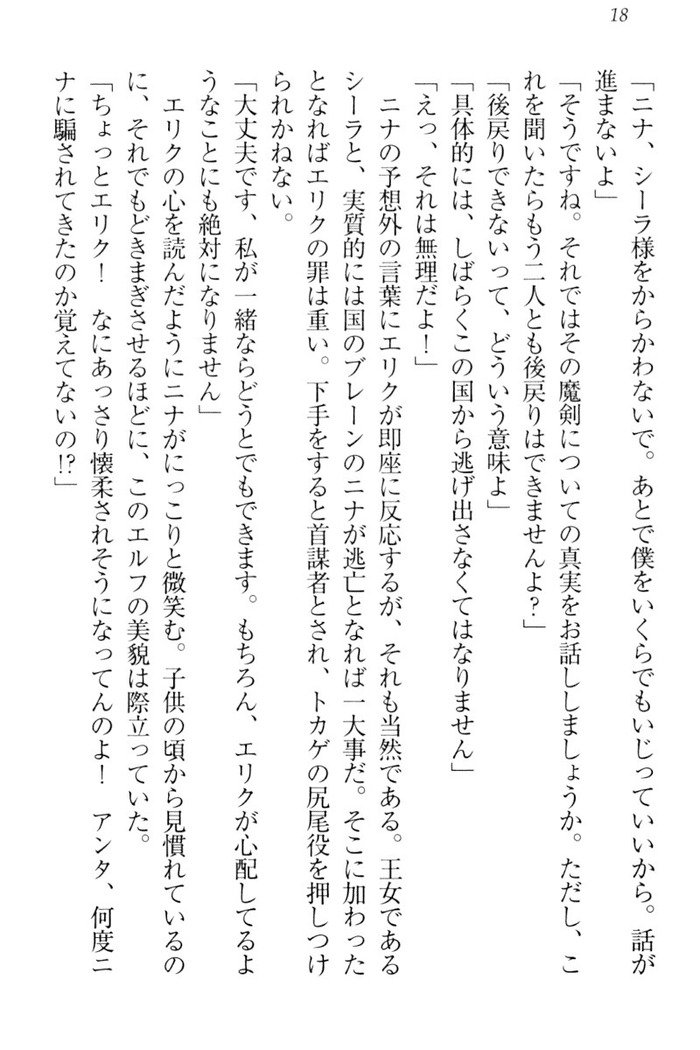 18
「ニナ、シーラ様をからかわないで。あとで僕をいくらでもいじっていいから。話が
進まないよ」
「そうですね。それではその魔剣についての真実をお話ししましょうか。ただし、こ
れを聞いたらもう二人とも後戻りはできませんよ？」
「後戻りできないって、どういう意味よ」
「具体的には、しばらくこの国から逃げ出さなくてはなりません」
「えっ、それは無理だよ！」
　ニナの予想外の言葉にエリクが即座に反応するが、それも当然である。王女である
シーラと、実質的には国のブレーンのニナが逃亡となれば一大事だ。そこに加わった
となればエリクの罪は重い。下手をすると首謀者とされ、トカゲの尻尾役を押しつけ
られかねない。
「大丈夫です、私が一緒ならどうとでもできます。もちろん、エリクが心配してるよ
うなことにも絶対になりません」
　エリクの心を読んだようにニナがにっこりと微笑む。子供の頃から見慣れているの
に、それでもどきまぎさせるほどに、このエルフの美貌は際立っていた。
「ちょっとエリク！　なにあっさり懐柔されそうになってんのよ！　アンタ、何度ニ
ナに騙されてきたのか覚えてないの!?」